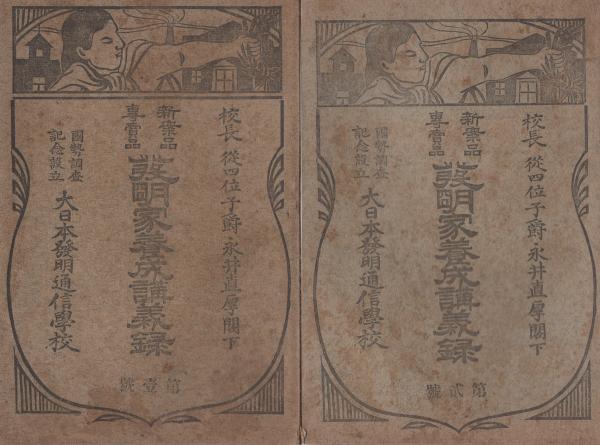 校長 從四位子爵 永井直厚閣下
新案品
專賣品
發明家養成講義録
國勢調査
記念設立
大日本發明通信學校
第壹號
校長 從四位子爵 永井直厚閣下
新案品
專賣品
發明家養成講義録
國勢調査
記念設立
大日本發明通信學校
第貳號